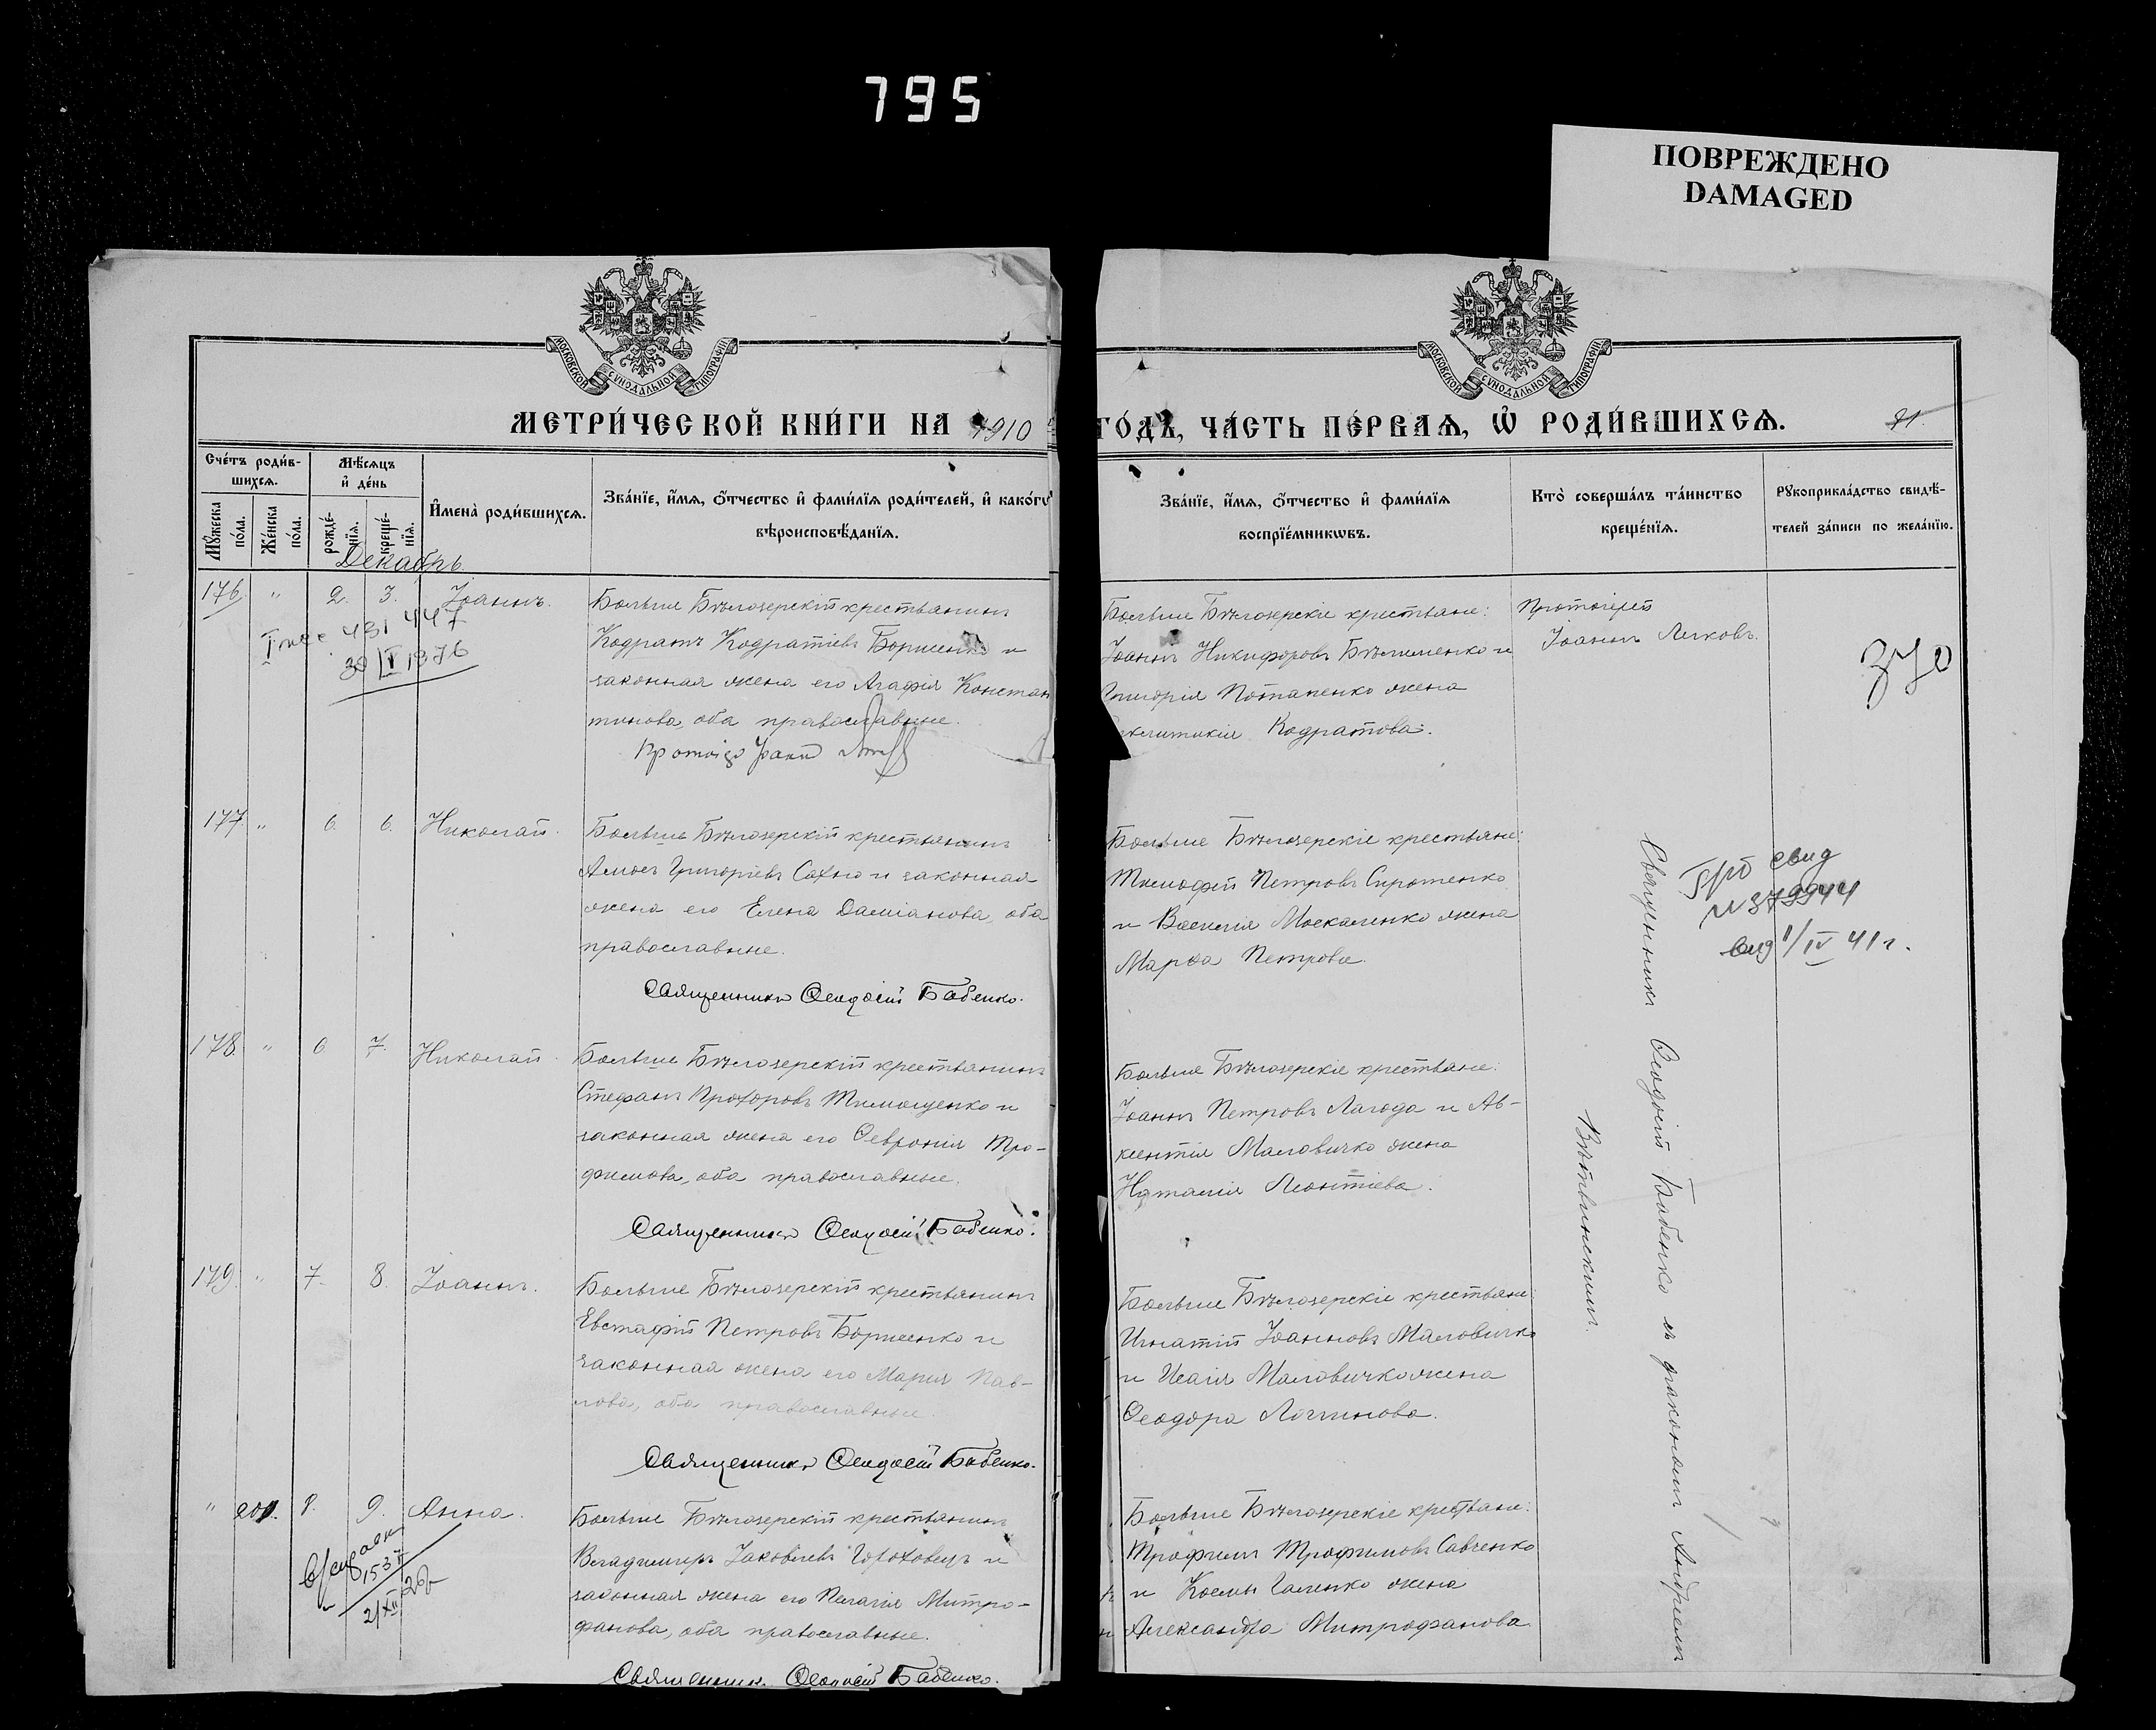 795
ПОВРЕЖДЕНО
DAMAGED
МОСКОВСКОЙ СѴНОДАЛЬНОЙ ТИПОГРАФІИ
МОСКОВСКОЙ СѴНОДАЛЬНОЙ ТИПОГРАФІИ
МЕТРИ́ЧЕСКОЙ КНИ́ГИ НА 1910
ГО́ДЪ, ЧА́СТЬ ПЕ́РВАѦ, Ѡ҆ РОДИ́ВШИХСѦ.
91.
Сче́тъ роди́в-
шихсѧ.
Мѣ́сѧцъ
и҆ де́нь
Мꙋ́жеска
по́ла.
Же́нска
по́ла.
рожде́-
нїѧ.
креще́-
нїѧ.
И҆мена̀ роди́вшихсѧ.
Зва́нїе, и҆́мѧ, ѻ҆́тчество и҆ фами́лїѧ роди́телей, и҆ како́гѡ
вѣроисповѣ́данїѧ.
Зва́нїе, и҆́мѧ, ѻ҆́тчество и҆ фами́лїѧ
воспрїе́мникѡвъ.
Кто̀ соверша́лъ та́инство
креще́нїѧ.
Рꙋкоприкла́дство свидѣ́-
телей за́писи по жела́нїю.
Декабрь
176. " 2. 3. Іоаннъ.
431 447
30/I 1976
Больше Бѣлозерскій крестьянинъ
Кодратъ Кодратіевъ Борисенко и
законная жена его Агафія Констан
тинова, оба православные.
Больше Бѣлозерскіе крестьяне:
Іоаннъ Никифоровъ Бѣлименко и
Григорія Потапенко жена
Кодратова.
Протоіерей
Іоаннъ Лиховъ.
370
177. " 6. 6. Николай.
Больше Бѣлозерскій крестьянинъ
Амосъ Григоріевъ Сахно и законная
жена его Елена Даміанова, оба
православные.
Священникъ Ѳеодосій Бабенко.
Больше Бѣлозерскіе крестьяне:
Тимофей Петровъ Сиротенко
и Василія Москаленко жена
Марѳа Петрова.
свид
N 379944
вид 1/IV 41 г.
178. " 6 7. Николай.
Больше Бѣлозерскій крестьянинъ
Стефанъ Прохоровъ Тимошенко и
законная жена его Ѳеврония Тро-
фимова, оба православные.
Священникъ Ѳеодосій Бабенко.
Больше Бѣлозерскіе крестьяне:
Іоаннъ Петровъ Лагода и Ав-
ксентія Маловичко жена
Наталія Леонтіева.
179. " 7. 8. Іоаннъ.
Больше Бѣлозерскій крестьянинъ
Евстафій Петровъ Борисенко и
законная жена его Марія Пав-
лова, оба православные.
Священникъ Ѳеодосій Бабенко.
Больше Бѣлозерскіе крестьяне:
Игнатій Іоанновъ Маловичко
и Исаія Маловичко жена
Ѳеодора Логинова.
" 201. 8. 9. Анна.
153
Больше Бѣлозерскій крестьянинъ
Владимиръ Іаковлевъ Гороховецъ и
законная жена его Пелагія Митро-
фанова, оба православные.
Священникъ Ѳеодосій Бабенко.
Больше Бѣлозерскіе крестьяне:
Трофимъ Трофимовъ Савченко
и Космы Галенко жена
Александра Митрофанова
Священникъ Ѳеодосій Бабенко съ діакономъ Андреемъ